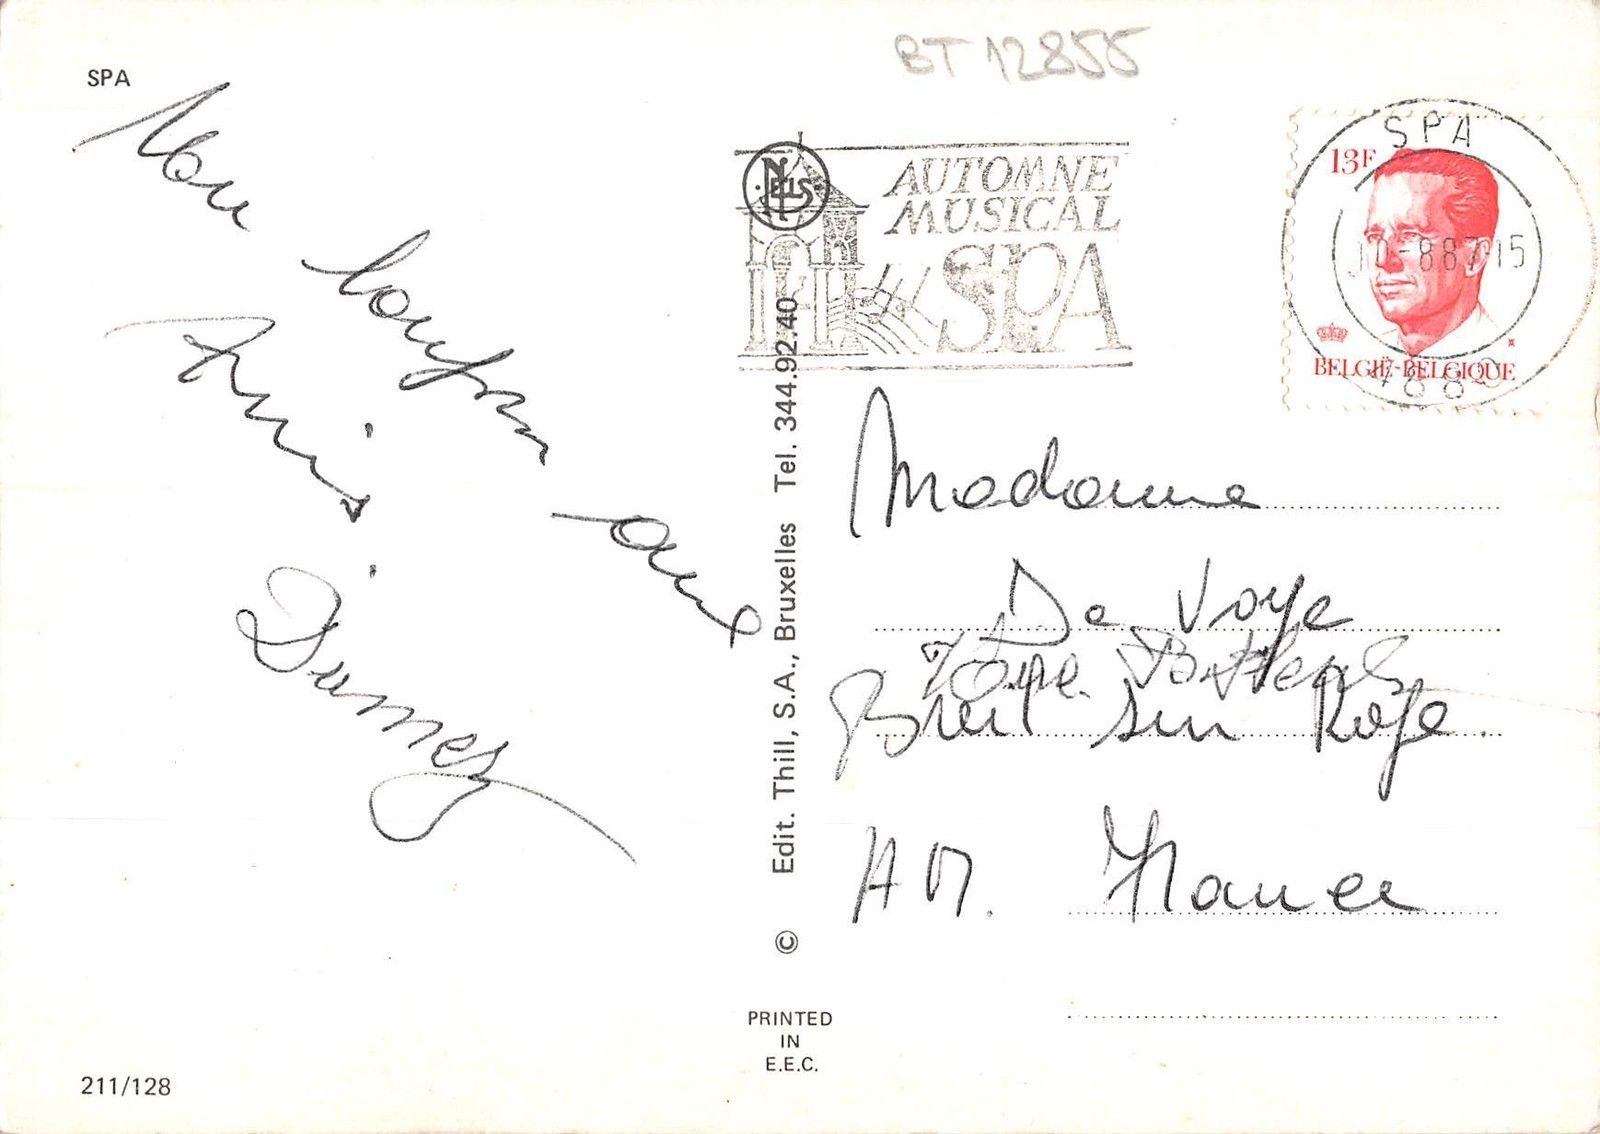 BT 12855
SPA
Mon
amis
Dumez
NELS
AUTOMNE
MUSICAL
SPA
SPA
13F
10-8 87 15
BELGIË-BELGIQUE
4880
Madame
De Voye
Breil sur Roya.
AM. France
© Edit. Thill, S.A., Bruxelles Tel. 344.92.40
PRINTED
IN
E.E.C.
211/128